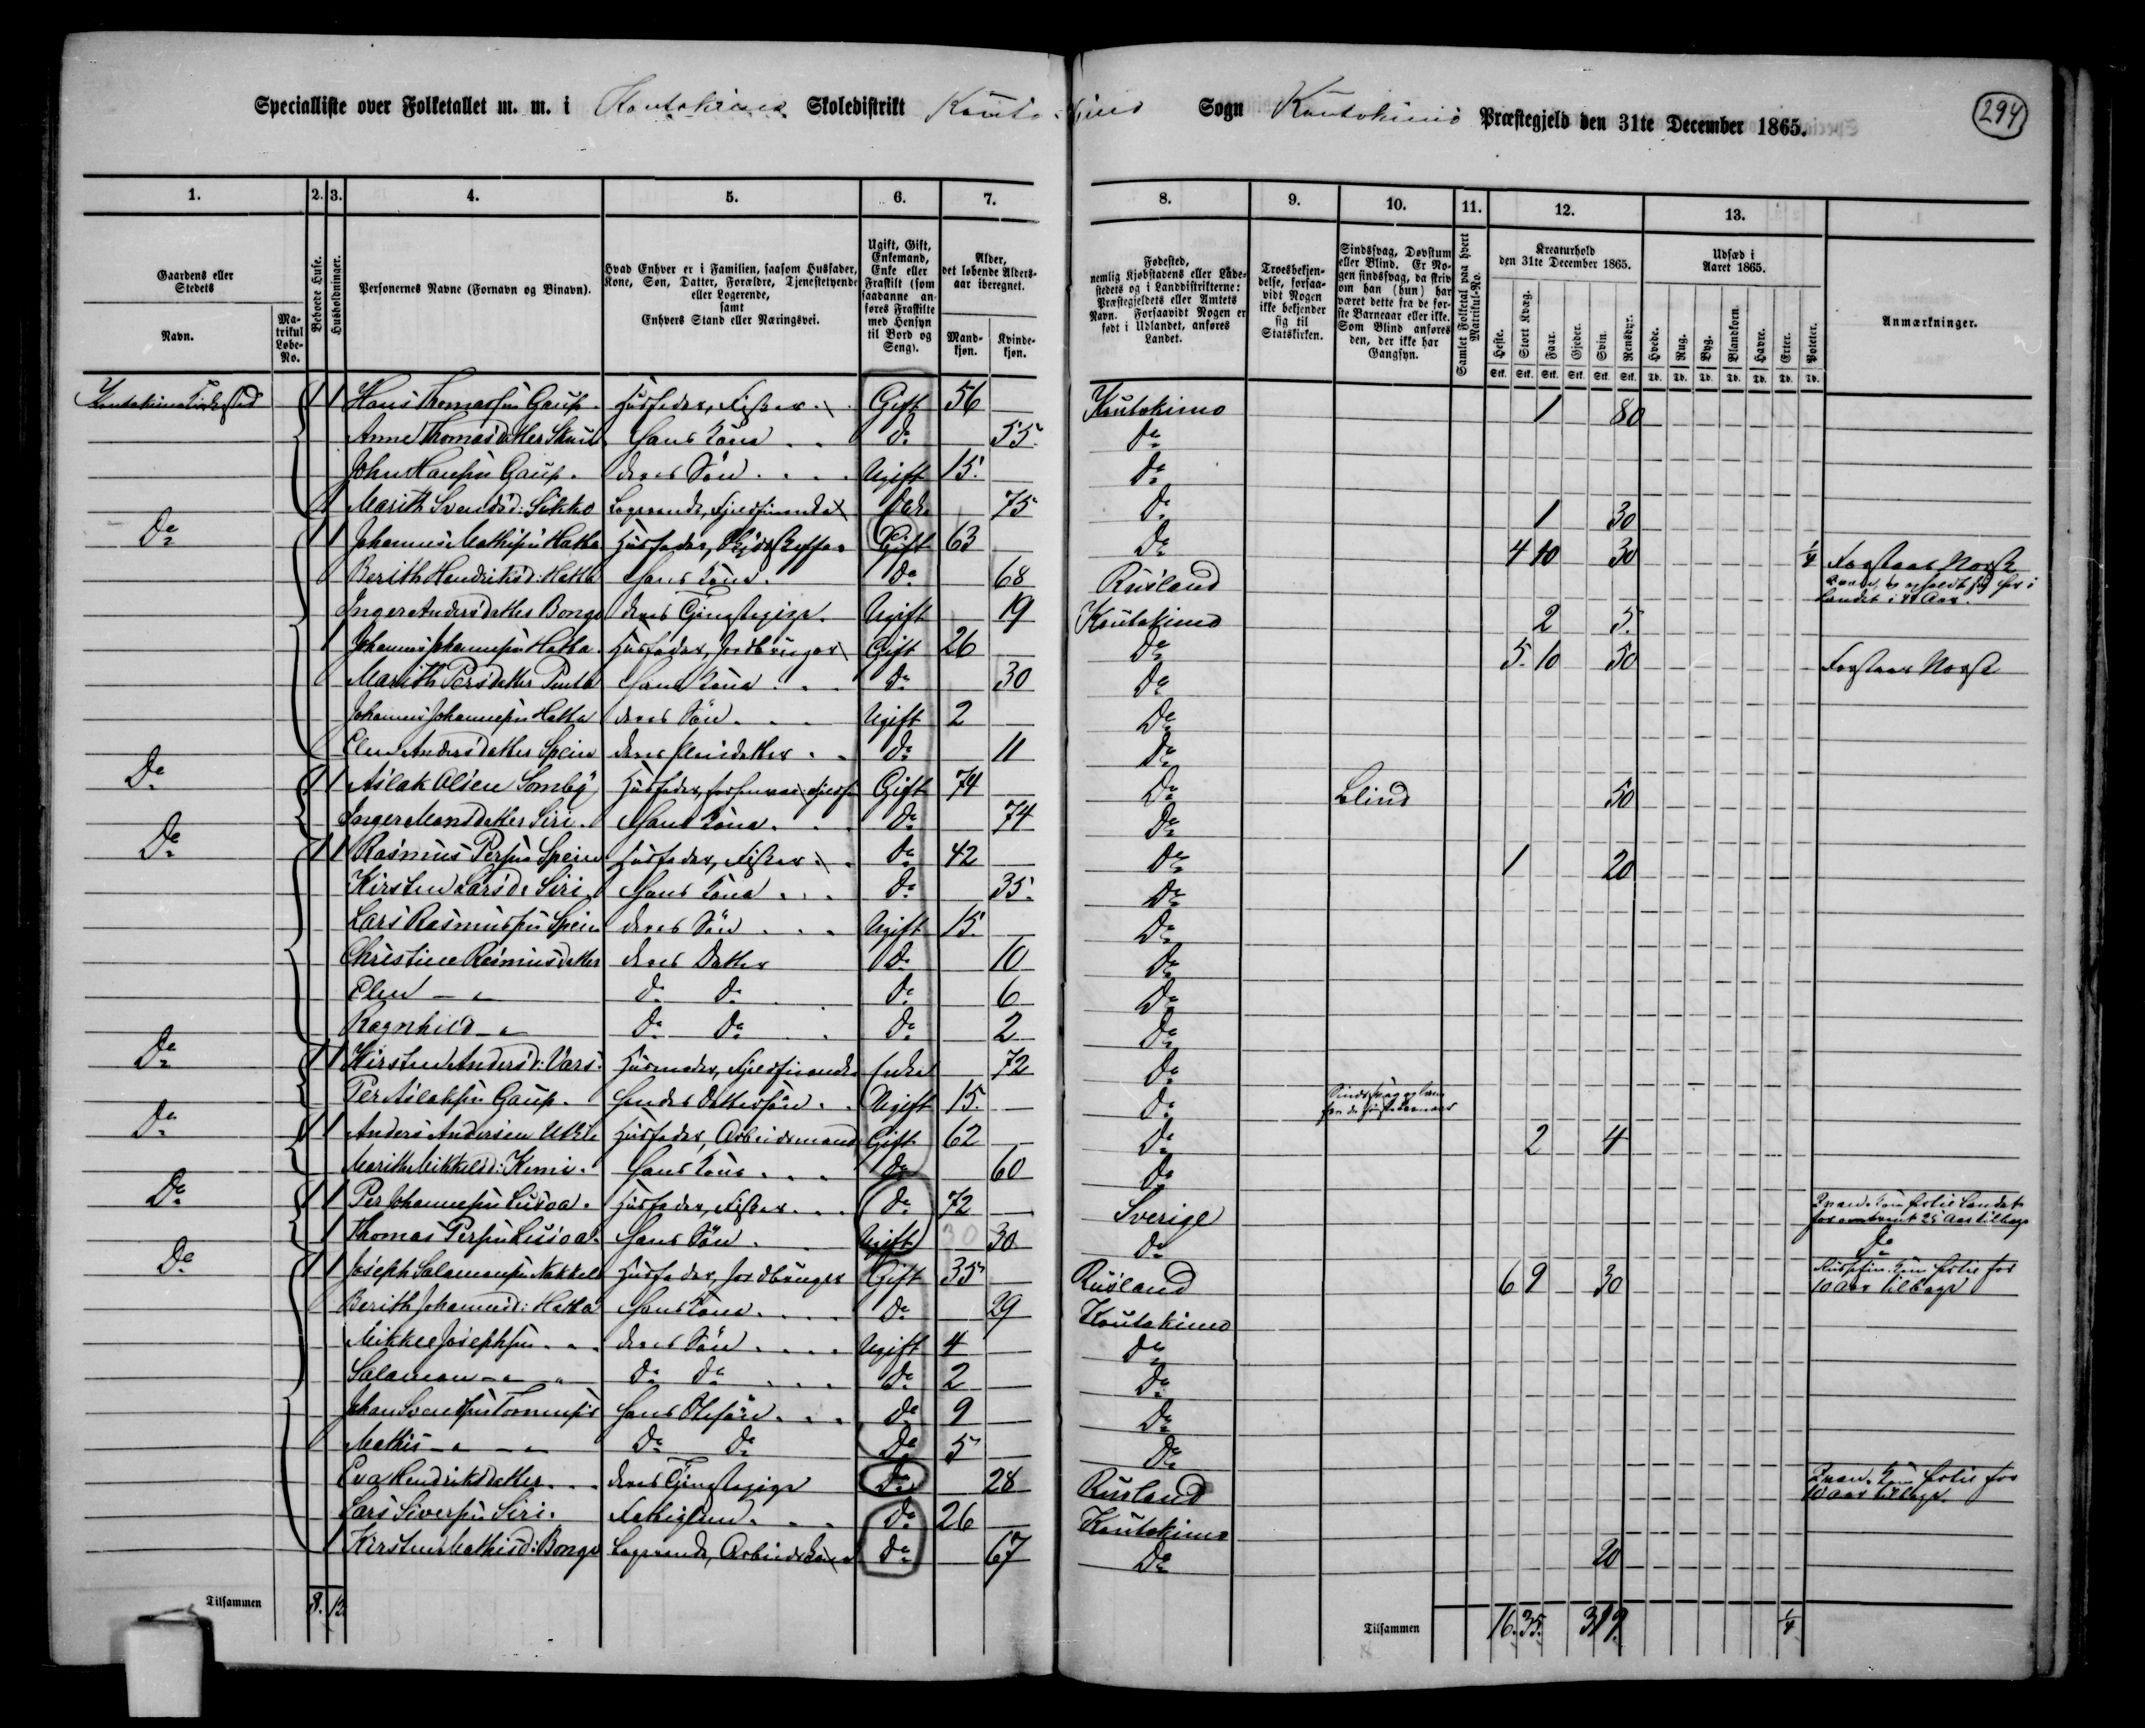 Specialliste over Folketallet m. m. i Koutokeino Skoledistrikt Kouto-
keino Sogn Koutokeino Præstegjeld den 31te December 1865. 294
1. 2. 3. 4. 5. 6. 7. 8. 9. 10. 11. 12. 13.
Gaardens eller Stedets
Navn.
Matrikul Løbe-No.
Beboede Huse.
Husholdninger.
Personernes Navne (Fornavn og Binavn).
Hvad Enhver er i Familien, saasom Husfader, Kone, Søn, Datter, Forældre, Tjenestetyende eller Logerende, samt Enhvers Stand eller Næringsvei.
Ugift, Gift, Enkemand, Enke eller Fraskilt (som saadanne anføres Fraskilte med Hensyn til Bord og Seng).
Alder, det løbende Aldersaar iberegnet.
Mandkjøn. Kvindekjøn.
Fødested, nemlig Kjøbstadens eller Ladestedets og i Landdistrikterne: Præstegjeldets eller Amtets Navn. Forsaavidt Nogen er født i Udlandet, anføres Landet.
Troesbekjendelse, forsaavidt Nogen ikke bekjender sig til Statskirken.
Sindssvag, Døvstum eller Blind. Er Nogen sindssvag, da skrives om han (hun) har været dette fra de første Barneaar eller ikke. Som Blind anføres den, der ikke har Gangsyn.
Samlet Folketal paa hvert Matrikul-No.
Kreaturhold den 31te December 1865.
Heste. Stort Kvæg. Faar. Gjeder. Svin. Rensdyr.
Stk. Stk. Stk. Stk. Stk. Stk.
Udsæd i Aaret 1865.
Hvede. Rug. Byg. Blandkorn. Havre. Erter. Poteter.
Td. Td. Td. Td. Td. Td. Td.
Anmærkninger.
Koutokeino Kirkested 1 1 Hans Thomassen Gaup. Husfader, Fisker Gift 56 Koutokeino 1 80
Anne Thomasdatter Skum Hans Kone Do 55 Do
John Hansen Gaup. deres Søn Ugift 15 Do
1 Marith Svendsd: Sikko Logerende, Fjeldfinenke Enke 75 Do 1 30
Do 1 1 Johannes Mathisen Hætta Husfader, Skydsskaffer Gift 63 Do 4 10 30 1/4 Forstaar Norsk
Berith Hendriksd: Hætta Hans Kone. Do 68 Rusland
Inger Andersdatter Bongo deres Tjenestepige. Ugift 19 Koutokeino 2 5
1 Johannes Johannesen Hætta Husfader, Jordbruger Gift 26 Do 5 10 50 Forstaar Norsk
Marith Persdatter Hans Kone Do 30 Do
Johannes Johannesen Hætta deres Søn Ugift 2 Do
Elen Andersdatter Spein deres Pleiedatter Do 11 Do
Do 1 1 Aslak Olsen Somby Husfader, Gift 74 Do Blind 50
Inger Monsdatter Siri. Hans Kone Do 74 Do
Do 1 1 Rasmus Persen Spein Husfader, Fisker Do 42 Do 1 20
Kirsten Larsd. Siri Hans Kone Do 35 Do
Lars Rasmussen Spein deres Søn Ugift 15 Do
Christine Rasmusdatter deres Datter Do 10 Do
Elen - " Do Do Do 6 Do
Ragnhild - " Do Do Do 2 Do
Do 1 1 Kirsten Andersd: Vars. Husmoder, Fjeldfinenke Enke 72 Do
Per Aslaksen Gaup. Hendes Dattersøn Ugift 15 Do
Do 1 1 Anders Andersen Utsi Husfader, Arbeidsmand Gift 62 Do 2 4
Marith Mikkelsd: Kemi. Hans Kone Do 60 Do
Do 1 1 Per Johannesen Husfader, Fisker Do 72 Sverige
1 Thomas Persen Hans Søn Ugift 30 30 Do Do
Do 1 1 Joseph Salamonsen Nakkela Husfader, Jordbruger Gift 35 Rusland 6 9 30 10 Aar tilbage
Berith Johannesd: Hætta Hans Kone Do 29 Koutokeino
Mikkel Josephsen deres Søn Ugift 4 Do
Salamon - " Do Do Do 2 Do
Johan Svendsen Hans Do 9 Do
Mathis - " - " Do Do Do 5 Do
Eva Hendriksdatter deres Tjenestepige Do 28 Rusland 10 Aar tilbage.
Lars Siversen Siri. Do 26 Koutokeino
1 Kirsten Mathisd: Bongo Logerende, Arbeidskone Do 67 Do 20
Tilsammen 8. 12. Tilsammen 16. 35. 319. 1/4